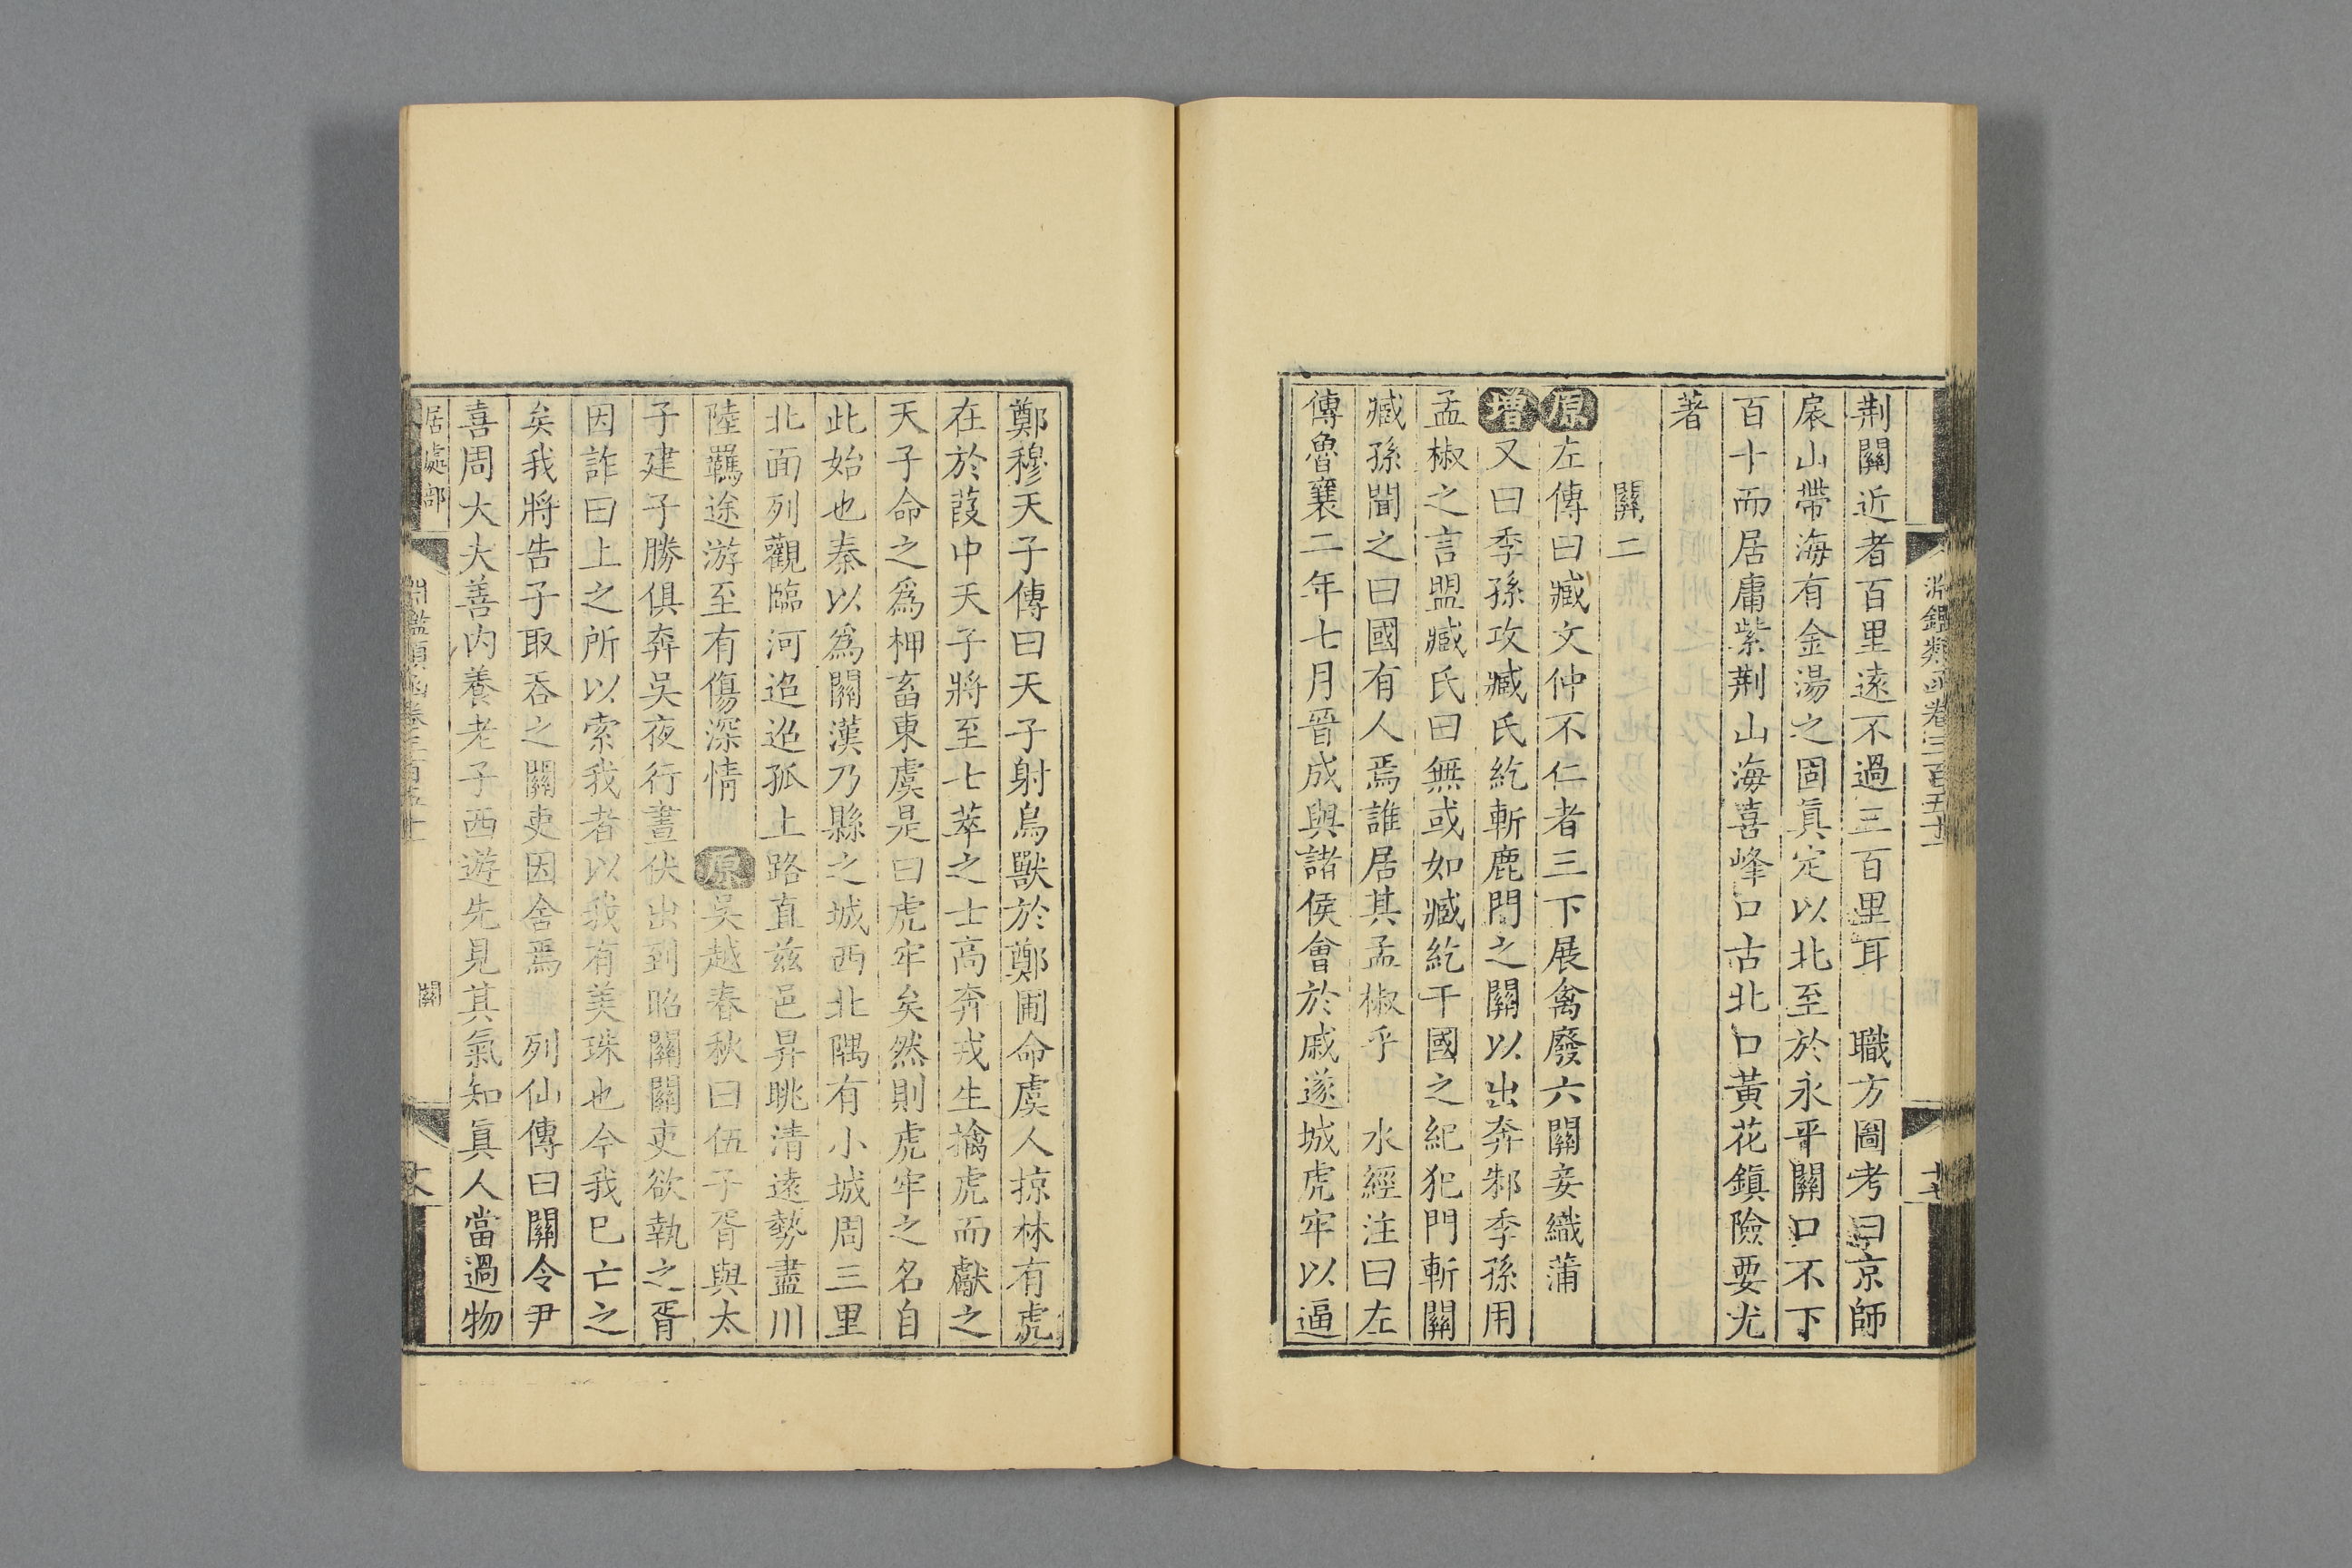 淵鑑類函卷三百五十
荆關近者百里遠不過三百里耳 職方圖考曰京師
扆山帶海有金湯之固眞定以北至於永平關口不下
百十而居庸紫荆山海喜峰口古北口黃花鎮險要尤
著
關二
原左傳曰臧文仲不仁者三下展禽廢六關妾織蒲
增又曰季孫攻臧氏紇斬鹿門之關以出奔邾季孫用
孟椒之言盟臧氏曰無或如臧紇干國之紀犯門斬關
臧孫聞之曰國有人焉誰居其孟椒乎 水經注曰左
傳魯襄二年七月晉成與諸侯會於戚遂城虎牢以逼
鄭穆天子傳曰天子射鳥獸於鄭圃命虞人掠林有虎
在於葭中天子將至七萃之士高奔戎生擒虎而獻之
天子命之爲柙畜東虞是曰虎牢矣然則虎牢之名自
此始也秦以爲關漢乃縣之城西北隅有小城周三里
北面列觀臨河迢迢孤上路直兹邑昇眺清遠勢盡川
陸羈途游至有傷深情 原吳越春秋曰伍子胥與太
子建子勝俱奔吳夜行晝伏出到昭關關吏欲執之胥
因詐曰上之所以索我者以我有美珠也今我已亡之
矣我將告子取吞之關吏因舍焉 列仙傳曰關令尹
喜周大大善内養老子西遊先見其氣知眞人當過物
居處部
淵鑑類函卷三百五十
關